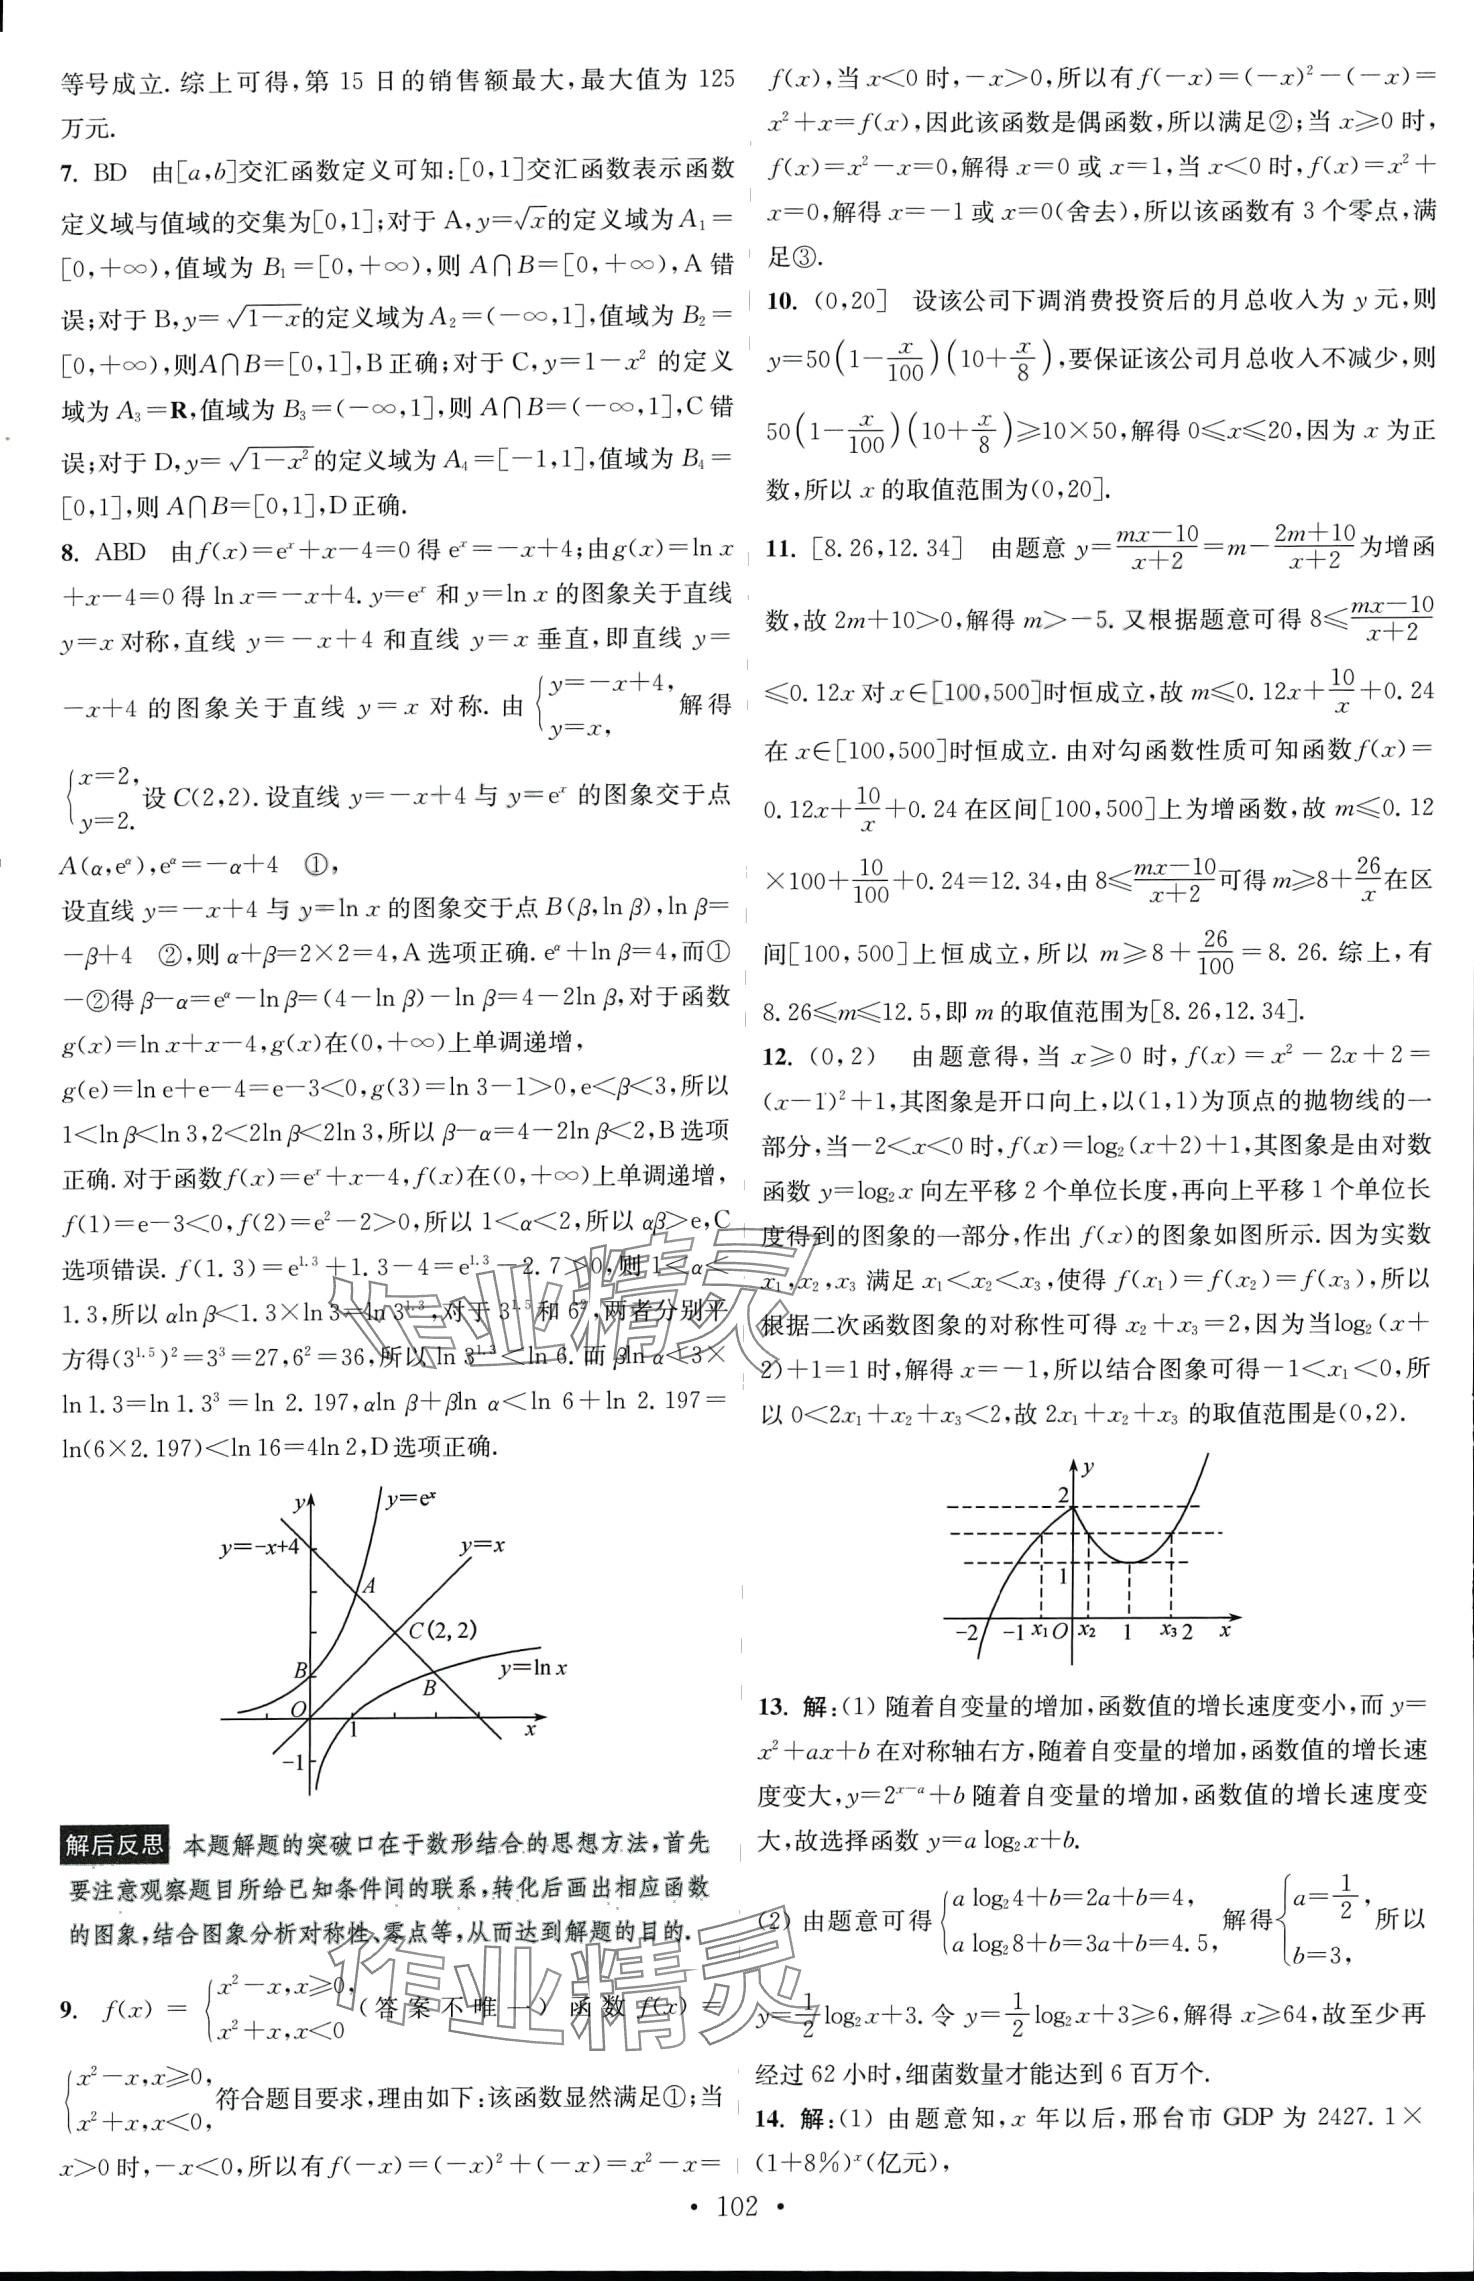 等号成立. 综上可得,第 15 日的销售额最大,最大值为 125
万元.
7. BD 由[a,b]交汇函数定义可知:[0,1]交汇函数表示函数
定义域与值域的交集为[0,1];对于 A,y=√x的定义域为A₁=
[0,+∞),值域为 B₁=[0,+∞),则 A∩B=[0,+∞),A 错
误;对于 B,y=√(1-x)的定义域为A₂=(-∞,1],值域为 B₂=
[0,+∞),则A∩B=[0,1],B正确;对于 C,y=1-x² 的定义
域为 A₃=R,值域为 B₃=(-∞,1],则 A∩B=(-∞,1],C错
误;对于 D,y=√(1-x²)的定义域为 A₄=[-1,1],值域为 B₄=
[0,1],则 A∩B=[0,1],D正确.
8. ABD 由f(x)=eˣ+x-4=0 得 eˣ=-x+4;由g(x)=ln x
+x-4=0 得 ln x=-x+4. y=eˣ 和 y=ln x 的图象关于直线
y=x 对称,直线 y=-x+4 和直线 y=x 垂直,即直线 y=
-x+4 的图象关于直线 y=x 对称. 由 {y=-x+4, y=x, 解得
{x=2, y=2. 设 C(2,2). 设直线 y=-x+4 与 y=eˣ 的图象交于点
A(α,e^α),e^α=-α+4 ①,
设直线 y=-x+4 与 y=ln x 的图象交于点 B(β,ln β),ln β=
-β+4 ②,则 α+β=2×2=4,A 选项正确. e^α+ln β=4,而①
-②得 β-α=e^α-ln β=(4-ln β)-ln β=4-2ln β,对于函数
g(x)=ln x+x-4,g(x)在(0,+∞)上单调递增,
g(e)=ln e+e-4=e-3<0,g(3)=ln 3-1>0,e<β<3,所以
1<ln β<ln 3,2<2ln β<2ln 3,所以 β-α=4-2ln β<2,B 选项
正确. 对于函数 f(x)=eˣ+x-4,f(x)在(0,+∞)上单调递增,
f(1)=e-3<0,f(2)=e²-2>0,所以 1<α<2,所以 αβ>e,C
选项错误. f(1.3)=e^1.3+1.3-4=e^1.3-2.7>0,则 1<α<
1.3,所以 αln β<1.3×ln 3=ln 3^1.3,对于 3^1.5 和 6²,两者分别平
方得(3^1.5)²=3³=27,6²=36,所以 ln 3^1.3<ln 6. 而 βln α<3×
ln 1.3=ln 1.3³=ln 2.197,αln β+βln α<ln 6+ln 2.197=
ln(6×2.197)<ln 16=4ln 2,D选项正确.
y
y=eˣ
y=-x+4
y=x
A
C(2,2)
B
y=ln x
B
O
1
x
-1
解后反思 本题解题的突破口在于数形结合的思想方法,首先
要注意观察题目所给已知条件间的联系,转化后画出相应函数
的图象,结合图象分析对称性、零点等,从而达到解题的目的.
9. f(x)={x²-x,x≥0, x²+x,x<0 (答案不唯一) 函数 f(x)=
{x²-x,x≥0, x²+x,x<0, 符合题目要求,理由如下:该函数显然满足①;当
x>0 时,-x<0,所以有 f(-x)=(-x)²+(-x)=x²-x=
f(x),当 x<0 时,-x>0,所以有 f(-x)=(-x)²-(-x)=
x²+x=f(x),因此该函数是偶函数,所以满足②;当 x≥0 时,
f(x)=x²-x=0,解得 x=0 或 x=1,当 x<0 时,f(x)=x²+
x=0,解得 x=-1或 x=0(舍去),所以该函数有 3 个零点,满
足③.
10. (0,20] 设该公司下调消费投资后的月总收入为 y 元,则
y=50(1-x/100)(10+x/8),要保证该公司月总收入不减少,则
50(1-x/100)(10+x/8)≥10×50,解得 0≤x≤20,因为 x 为正
数,所以 x 的取值范围为(0,20].
11. [8.26,12.34] 由题意 y=(mx-10)/(x+2)=m-(2m+10)/(x+2)为增函
数,故 2m+10>0,解得 m>-5. 又根据题意可得 8≤(mx-10)/(x+2)
≤0.12x 对 x∈[100,500]时恒成立,故 m≤0.12x+10/x+0.24
在 x∈[100,500]时恒成立. 由对勾函数性质可知函数f(x)=
0.12x+10/x+0.24 在区间[100,500]上为增函数,故 m≤0.12
×100+10/100+0.24=12.34,由 8≤(mx-10)/(x+2)可得 m≥8+26/x在区
间[100,500]上恒成立,所以 m≥8+26/100=8.26. 综上,有
8.26≤m≤12.5,即 m 的取值范围为[8.26,12.34].
12. (0,2) 由题意得,当 x≥0 时,f(x)=x²-2x+2=
(x-1)²+1,其图象是开口向上,以(1,1)为顶点的抛物线的一
部分,当-2<x<0 时,f(x)=log₂(x+2)+1,其图象是由对数
函数 y=log₂x 向左平移 2 个单位长度,再向上平移 1 个单位长
度得到的图象的一部分,作出 f(x)的图象如图所示. 因为实数
x₁,x₂,x₃ 满足 x₁<x₂<x₃,使得 f(x₁)=f(x₂)=f(x₃),所以
根据二次函数图象的对称性可得 x₂+x₃=2,因为当log₂(x+
2)+1=1 时,解得 x=-1,所以结合图象可得-1<x₁<0,所
以 0<2x₁+x₂+x₃<2,故 2x₁+x₂+x₃ 的取值范围是(0,2).
y
2
1
-2 -1 x₁ O x₂ 1 x₃ 2 x
13. 解:(1) 随着自变量的增加,函数值的增长速度变小,而 y=
x²+ax+b 在对称轴右方,随着自变量的增加,函数值的增长速
度变大,y=2^(x-a)+b 随着自变量的增加,函数值的增长速度变
大,故选择函数 y=a log₂x+b.
(2) 由题意可得{a log₂4+b=2a+b=4, a log₂8+b=3a+b=4.5, 解得{a=1/2, b=3, 所以
y=1/2 log₂x+3. 令 y=1/2 log₂x+3≥6,解得 x≥64,故至少再
经过 62 小时,细菌数量才能达到 6 百万个.
14. 解:(1) 由题意知,x 年以后,邢台市 GDP 为 2427.1×
(1+8%)ˣ(亿元),
• 102 •
作业精灵
作业精灵